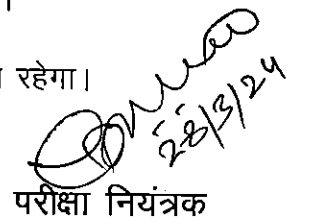 ।
रहेगा।
28/3/24
परीक्षा नियंत्रक